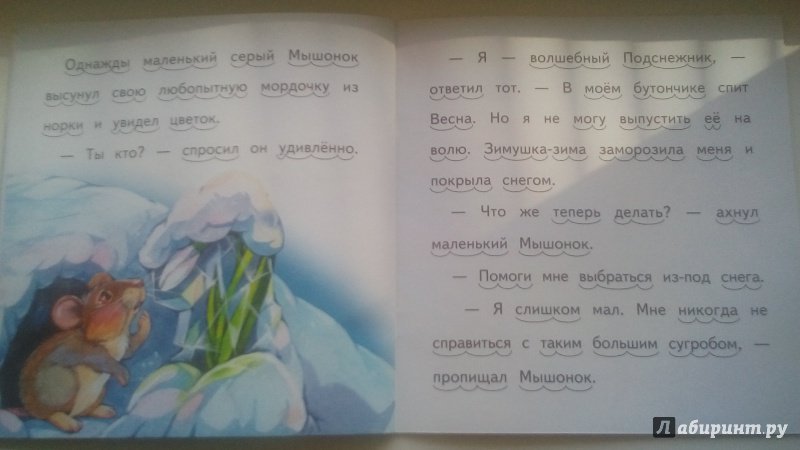 Однажды маленький серый Мышонок
высунул свою любопытную мордочку из
норки и увидел цветок.
— Ты кто? — спросил он удивлённо.
— Я — волшебный Подснежник, —
ответил тот. — В моём бутончике спит
Весна. Но я не могу выпустить её на
волю. Зимушка-зима заморозила меня и
покрыла снегом.
— Что же теперь делать? — ахнул
маленький Мышонок.
— Помоги мне выбраться из-под снега.
— Я слишком мал. Мне никогда не
справиться с таким большим сугробом, —
пропищал Мышонок.
Лабиринт.ру